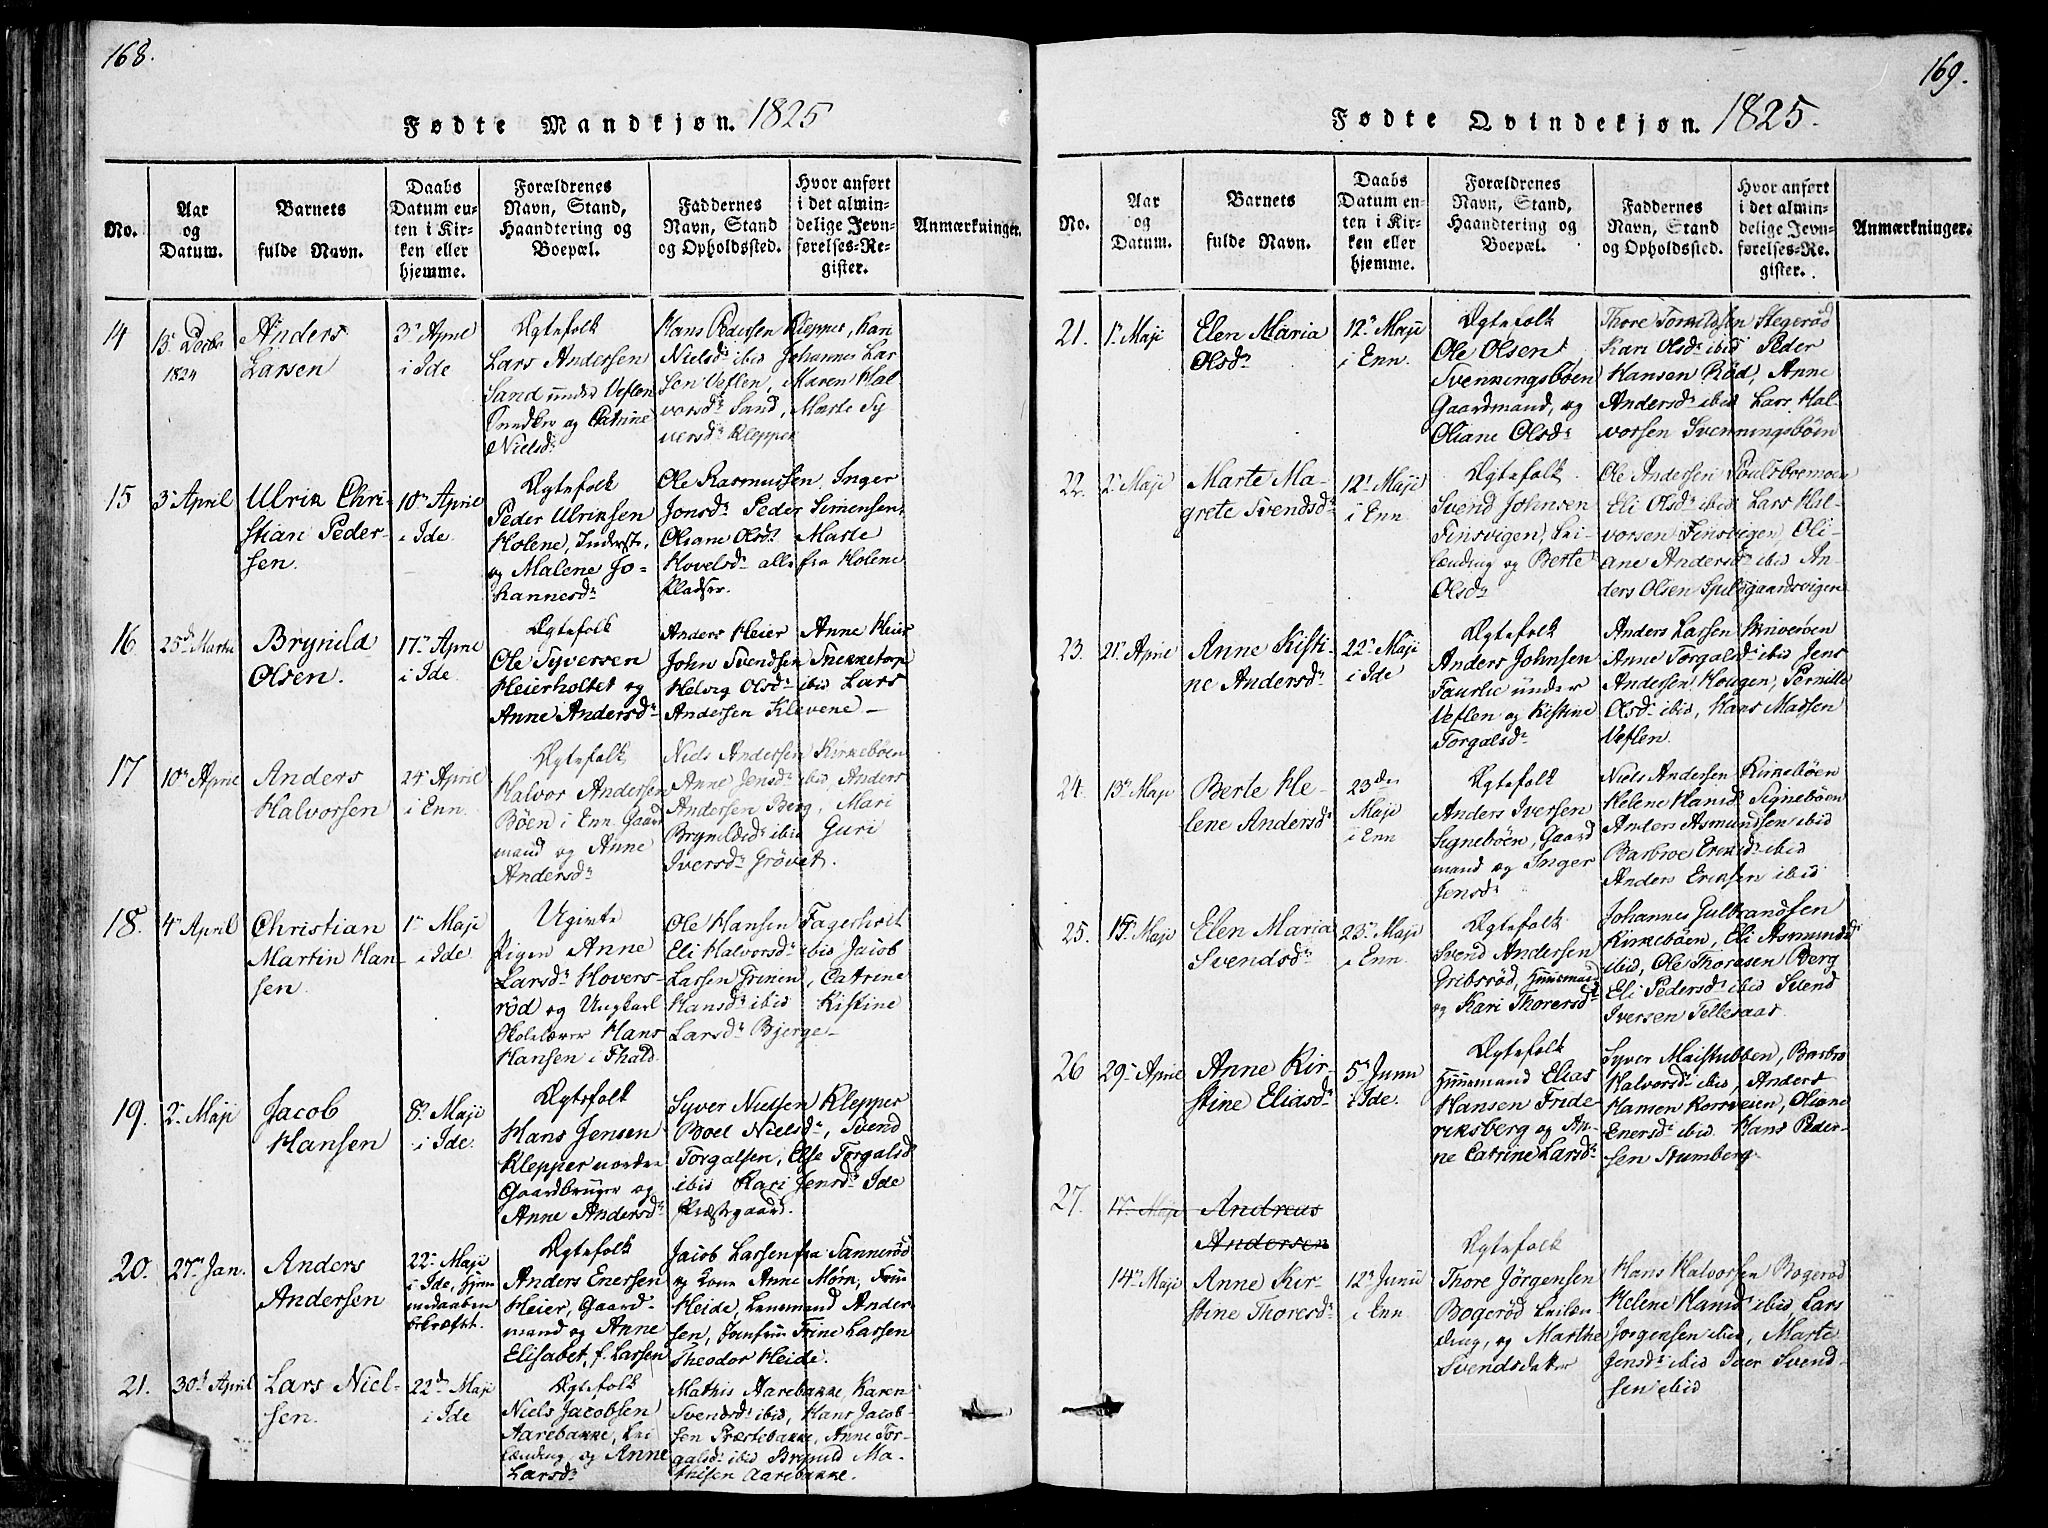 168.
Fødte Mandkjøn. 1825
No.
Aar
og
Datum.
Barnets
fulde Navn.
Daabs
Datum en-
ten i Kir-
ken eller
hjemme.
Forældrenes
Navn, Stand,
Haandtering og
Boepæl.
Faddernes
Navn, Stand
og Opholdssted.
Hvor anført
i det almin-
delige Jevn-
førelses-Re-
gister.
Anmærkninger.
14
13 Decbr
1824
Anders
Larsen
3 April
i Ide
Ægtefolk
Lars Andersen
Sand under Veflen
og Catrine
Nielsdr
Hans Pedersen Klepper, Kari
Nielsdr ibid Johannes Lar
sen Veflen, Maren Hal
vorsdr Sand, Marte Sy
versdr Klepper
15
3 April
Ulrik Chri-
stian Peder-
sen.
10n April
i Ide
Ægtefolk
Peder Ulriksen
Holene, Inderst,
og Malene Jo-
hannesdr
Ole Rasmussen, Inger
Jonsdr Peder Simensen,
Oliane Olsdr Marte
Hovelsdr alle fra Holene
Pladser.
16
25de Martz
Brynild
Olsen.
17n April
i Ide
Ægtefolk
Ole Syversen
Heierholtet og
Anne Andersdr
Anders Heier Anne Heier
John Svendsen Snekketorp
Helvig Olsdr ibid Lars
Andersen Klevene -
17
10n April
Anders
Halvorsen
24 April
i Enn.
Ægtefolk
Halvor Andersen
Böen i Enn Gaard
mand og Anne
Andersdr
Niels Andersen Kirkebøen
Anne Jensdr ibid, Anders
Andersen Berg, Mari
Brynildsdr ibid Guri
Iversdr Grøvet.
18.
4n April
Christian
Martin Han-
sen.
1n Maji
i Ide
Ugivte
Pigen Anne
Larsdr Hovers-
rød og Ungkarl
Skolelærer Hans
Hansen i Fhald.
Ole Hansen Fagerholt
Eli Halvorsdr ibid Jacob
Larsen Grinen, Catrine
Hansdr ibid Kistine
Larsdr Bjerge-
19.
2 Maji
Jacob
Hansen
8n Maji
i Ide.
Ægtefolk
Hans Jensen
Klepper nordre
Gaardbruger og
Anne Andersdr
Syver Nielsen Klepper
Boel Nielsdr, Svend
Torgalsen, Else Torgalsd
ibid Kari Jensdr Ide
Præstegaard.
20.
27n Jan.
Anders
Andersen
22 Maji
i Ide, Hjem
medaaben
bekræftet.
Ægtefolk
Anders Enersen
Heier, Gaard-
mand og Anne
Elisabet, f. Larsen
Jacob Larsen fra Sannerød
og Kone Anne Mörn, Frue
Heide, Lensmand Ander
sen, Jomfrue Trine Larsen
Theodor Heide.
21.
30t April
Lars Niel-
sen.
22d Maji
i Ide
Ægtefolk
Niels Jacobsen
Aarebakke, Lei
lænding og Anne
Larsdr
Mathis Aarebakke, Karen
Svendsdr ibid, Hans Jacob-
sen Præstebakke, Anne Tor-
galsdr ibid Brynild Ma-
thisen Aarebakke.
169.
Fødte Qvindekjøn. 1825.
No.
Aar
og
Datum.
Barnets
fulde Navn.
Daabs
Datum en-
ten i Kir-
ken eller
hjemme.
Forældrenes
Navn, Stand,
Haandtering og
Boepæl.
Faddernes
Navn, Stand
og Opholdssted.
Hvor anført
i det almin-
delige Jevn-
førelses-Re-
gister.
Anmærkninger.
21.
1n Maji
Elen Maria
Olsdr
12n Maji
i Enn.
Ægtefolk
Ole Olsen
Svenningsbøen
Gaardmand, og
Oliane Olsdr
Thore Torkildsen Stegerød
Kari Olsdr ibid Peder
Hansen Röd, Anne
Andersdr ibid Lars Hal-
vorsen Svenningsbøen
22.
2 Maji
Marte Ma-
grete Svendsdr
12n Maji
i Enn
Ægtefolk
Svend Johnsen
Finsvigen, Lei-
lænding og Berte
Olsdr
Ole Andersen Poulsbremoen
Eli Olsdr ibid Lars Hal-
vorsen Finsvigen, Oli-
ane Andersdr ibid An-
ders Olsen Spilsgaardsvigen
23.
21 April
Anne Kisti-
ne Andersdr
22n Maji
i Ide
Ægtefolk
Anders Johnsen
Faurlie under
Veflen og Kistine
Torgalsdr
Anders Larsen Skriverøen
Anne Torgalsdr ibid Jens
Andersen Hougen, Pernille
Olsdr ibid, Hans Madsen
Veflen.
24.
13n Maji
Berte He-
lene Andersdr
23den
Maji
i Enn
Ægtefolk
Anders Iversen
Signebøen, Gaard
mand og Inger
Jensdr
Niels Andersen Kirkebøen
Helene Hansdr Signebøen
Anders Asmundsen ibid
Barbroe Eriksdr ibid
Anders Eriksen ibid
25.
15n Maji
Elen Maria
Svendsdr
23n Maji
i Enn.
Ægtefolk
Svend Andersen
Gribsrød, Huusmand
og Kari Thoresdr
Johannes Gulbrandsen
Kirkebøen, Eli Asmundsdr
ibid, Ole Thoresen Berg
Eli Pedersdr ibid Svend
Iversen Tellesaas.
26
29n April
Anne Kir-
stine Eliasdr
5n Junii
i Ide.
Ægtefolk
Huusmand Elias
Hansen Fride
riksberg og An-
ne Catrine Larsdr
Syver Maistubben, Barbro
Halvorsdr ibid, Anders
Hansen Korsveien, Oliane
Enersdr ibid Hans Peder-
sen Stumberg.
27.
17n Maji
Andreas
Andersen
14n Maji
Anne Kir-
stine Thoresdr
12n Junii
i Enn
Ægtefolk
Thore Jörgensen
Bogerød Leilæn
ding, og Marthe
Svendsdatter
Hans Halvorsen Bogerød
Helene Hansdr ibid Lars
Jorgensen ibid, Marte
Jensdr ibid Iver Svend-
sen ibid